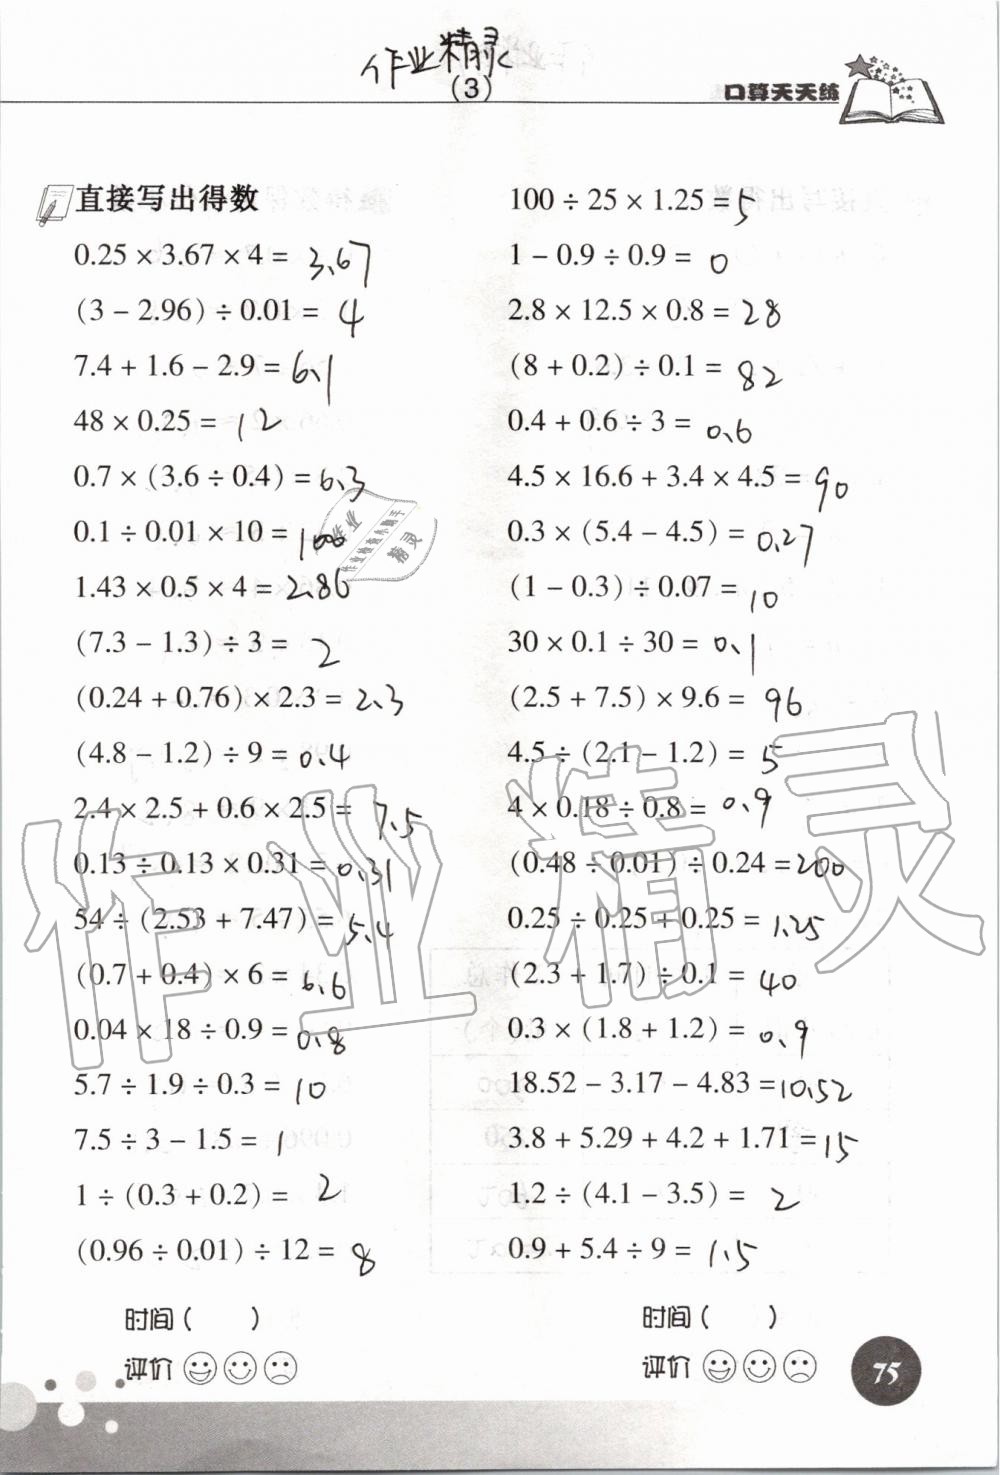 作业精灵
(3)
口算天天练
直接写出得数
0.25 × 3.67 × 4 = 3.67
(3 − 2.96) ÷ 0.01 = 4
7.4 + 1.6 − 2.9 = 6.1
48 × 0.25 = 12
0.7 × (3.6 ÷ 0.4) = 6.3
0.1 ÷ 0.01 × 10 = 100
1.43 × 0.5 × 4 = 2.86
(7.3 − 1.3) ÷ 3 = 2
(0.24 + 0.76) × 2.3 = 2.3
(4.8 − 1.2) ÷ 9 = 0.4
2.4 × 2.5 + 0.6 × 2.5 = 7.5
0.13 ÷ 0.13 × 0.31 = 0.31
54 ÷ (2.53 + 7.47) = 5.4
(0.7 + 0.4) × 6 = 6.6
0.04 × 18 ÷ 0.9 = 0.8
5.7 ÷ 1.9 ÷ 0.3 = 10
7.5 ÷ 3 − 1.5 = 1
1 ÷ (0.3 + 0.2) = 2
(0.96 ÷ 0.01) ÷ 12 = 8
时间( )
评价
100 ÷ 25 × 1.25 = 5
1 − 0.9 ÷ 0.9 = 0
2.8 × 12.5 × 0.8 = 28
(8 + 0.2) ÷ 0.1 = 82
0.4 + 0.6 ÷ 3 = 0.6
4.5 × 16.6 + 3.4 × 4.5 = 90
0.3 × (5.4 − 4.5) = 0.27
(1 − 0.3) ÷ 0.07 = 10
30 × 0.1 ÷ 30 = 0.1
(2.5 + 7.5) × 9.6 = 96
4.5 ÷ (2.1 − 1.2) = 5
4 × 0.18 ÷ 0.8 = 0.9
(0.48 ÷ 0.01) ÷ 0.24 = 200
0.25 ÷ 0.25 + 0.25 = 1.25
(2.3 + 1.7) ÷ 0.1 = 40
0.3 × (1.8 + 1.2) = 0.9
18.52 − 3.17 − 4.83 = 10.52
3.8 + 5.29 + 4.2 + 1.71 = 15
1.2 ÷ (4.1 − 3.5) = 2
0.9 + 5.4 ÷ 9 = 1.5
时间( )
评价
75
作业精灵